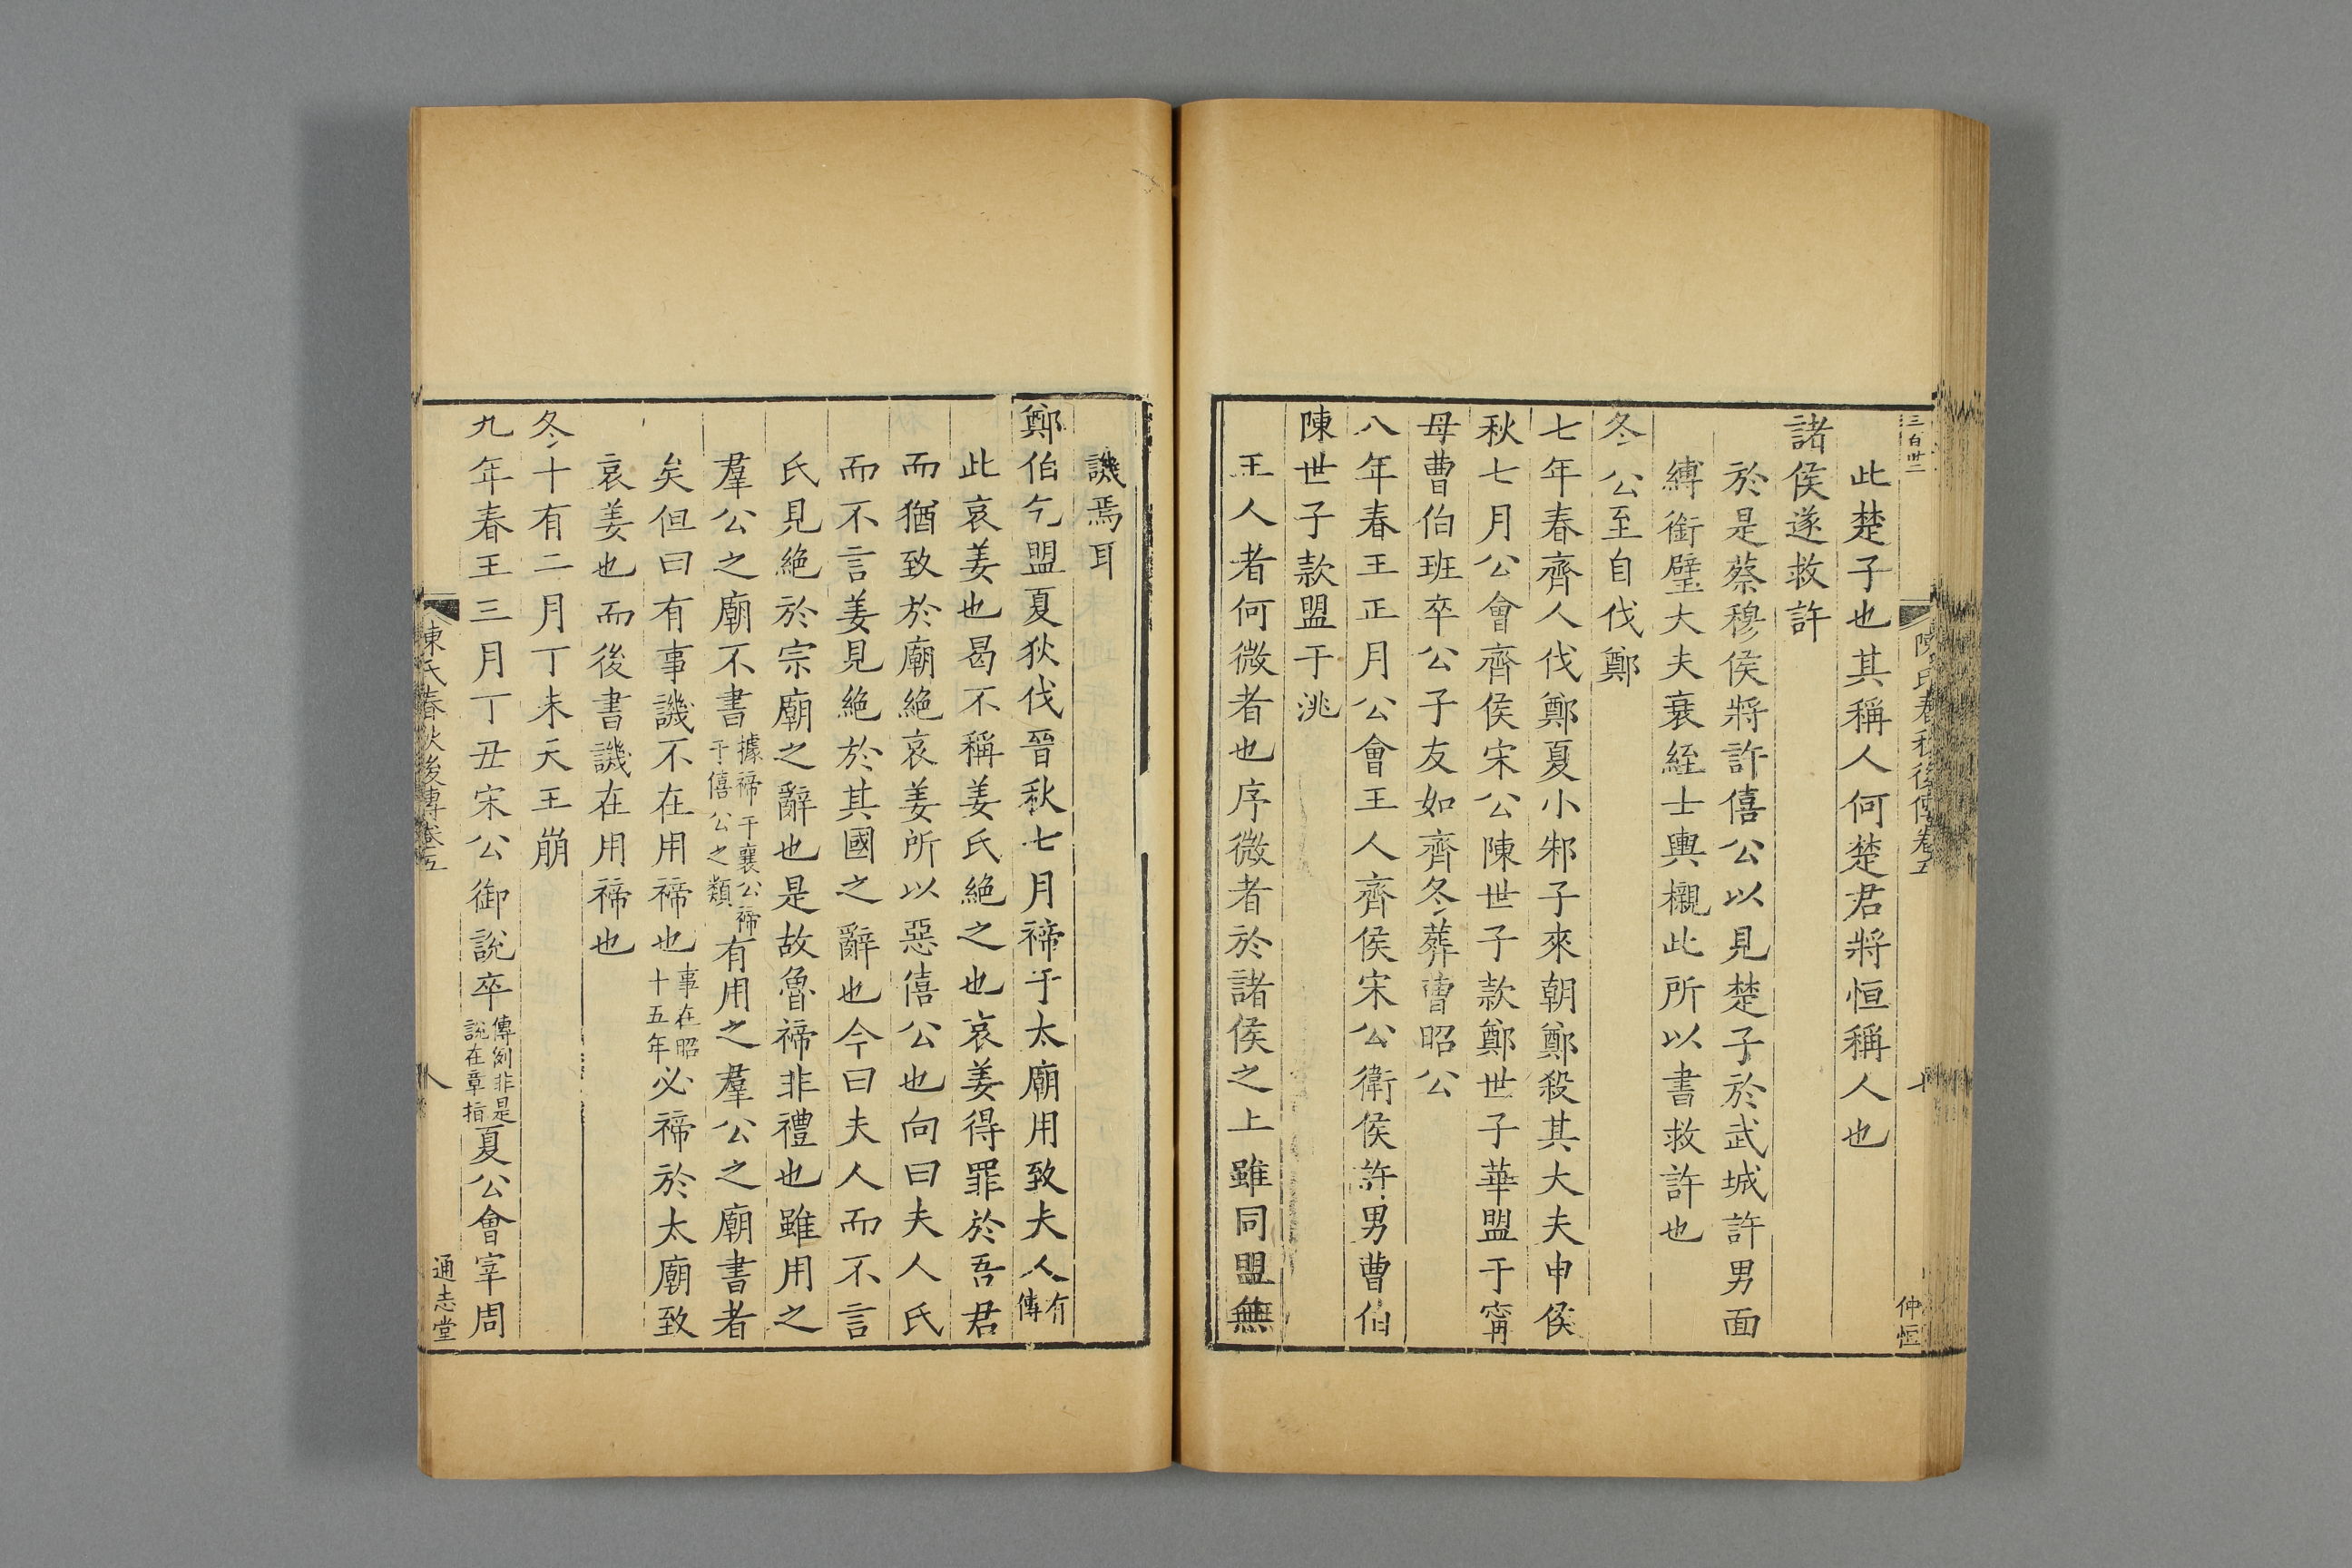 三百卅二
陳氏春秋後傳卷五
七
仲恒
此楚子也其稱人何楚君將恒稱人也
諸侯遂救許
於是蔡穆侯將許僖公以見楚子於武城許男面
縛銜璧大夫衰絰士輿櫬此所以書救許也
冬公至自伐鄭
七年春齊人伐鄭夏小邾子來朝鄭殺其大夫申侯
秋七月公會齊侯宋公陳世子款鄭世子華盟于甯
母曹伯班卒公子友如齊冬葬曹昭公
八年春王正月公會王人齊侯宋公衛侯許男曹伯
陳世子款盟于洮
王人者何微者也序微者於諸侯之上雖同盟無
譏焉耳
鄭伯乞盟夏狄伐晉秋七月禘于太廟用致夫人有傳
此哀姜也曷不稱姜氏絕之也哀姜得罪於吾君
而猶致於廟絕哀姜所以惡僖公也向曰夫人氏
而不言姜見絕於其國之辭也今曰夫人而不言
氏見絕於宗廟之辭也是故魯禘非禮也雖用之
羣公之廟不書據禘于襄公禘于僖公之類有用之羣公之廟書者
矣但曰有事譏不在用禘也事在昭十五年必禘於太廟致
哀姜也而後書譏在用禘也
冬十有二月丁未天王崩
九年春王三月丁丑宋公御說卒傳例非是說在章指夏公會宰周
陳氏春秋後傳卷五
八
通志堂